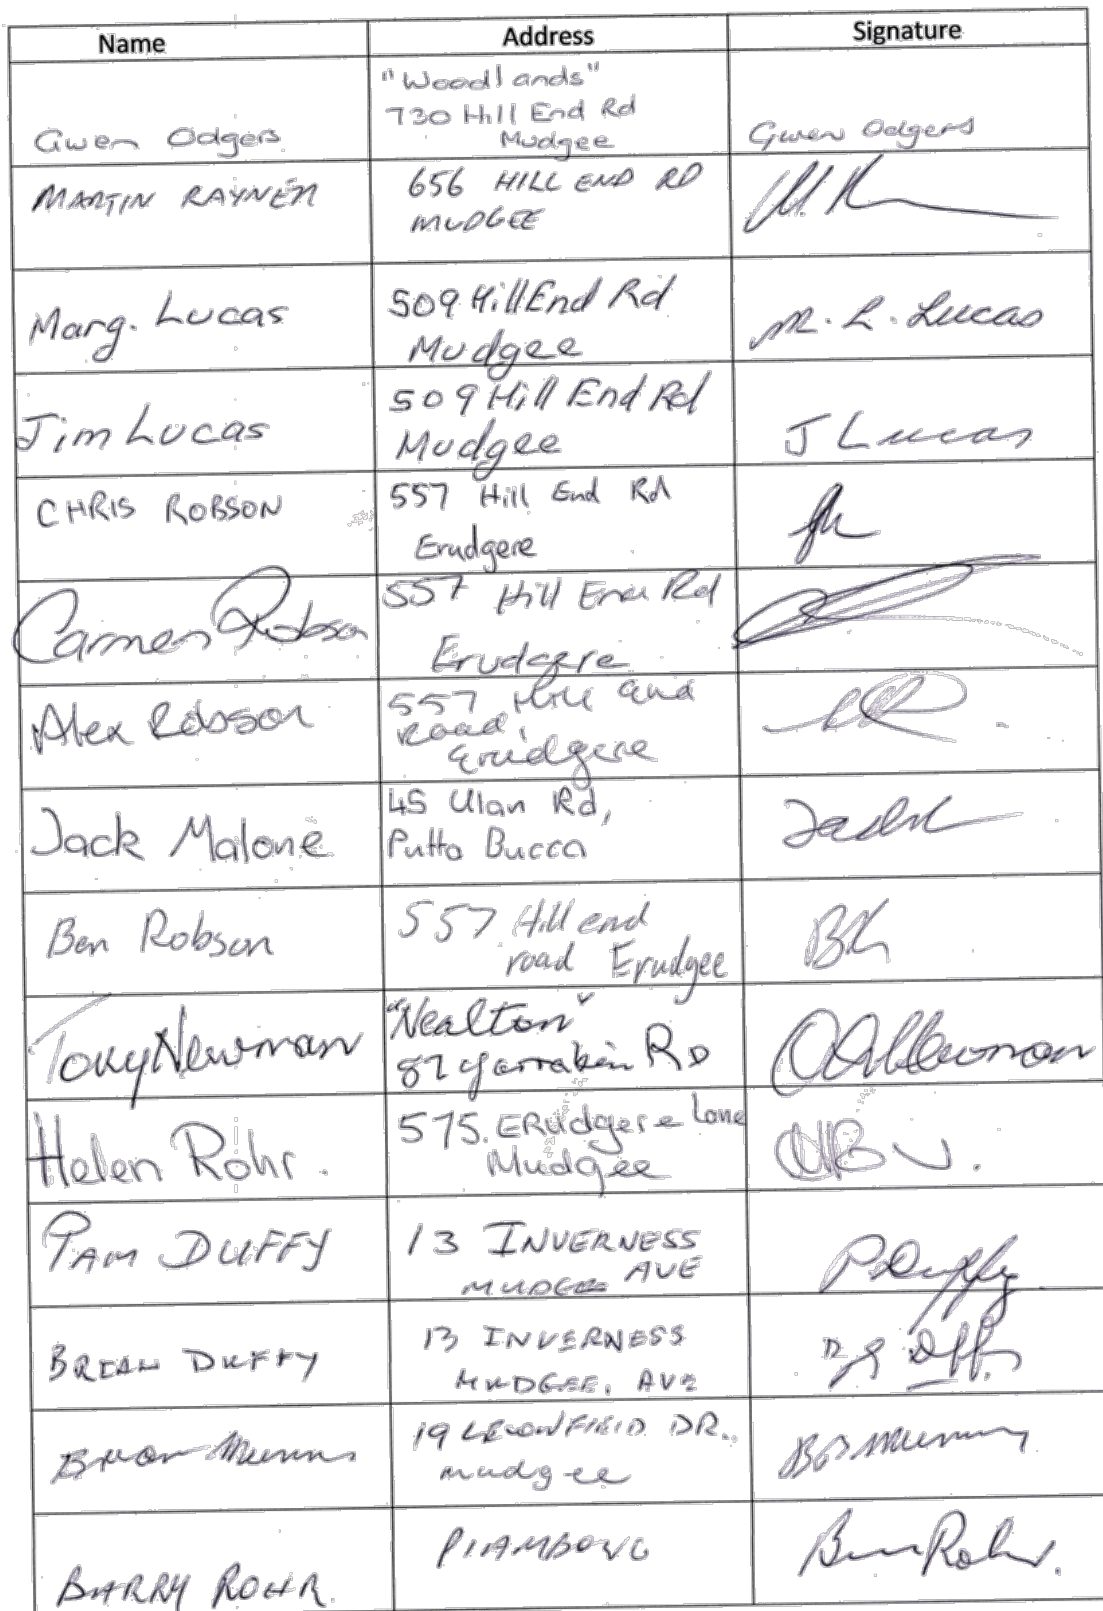 Name Address Signature
"Woodlands"
730 Hill End Rd
Gwen Odgers Mudgee Gwen Odgers
MARTIN RAYNER 656 HILL END RD
MUDGEE
Marg. Lucas 509 Hill End Rd M. L. Lucas
Mudgee
Jim Lucas 509 Hill End Rd J Lucas
Mudgee
CHRIS ROBSON 557 Hill End Rd
Erudgere
Carmen Robson 557 Hill End Rd
Erudgere
Alex Robson 557 Hill End
Road,
Erudgere
Jack Malone 45 Ulan Rd,
Putta Bucca
Ben Robson 557 Hill end
road Erudgee
Tony Newman "Nealton"
82 Yarrabin RD
Helen Rohr. 575. ERudgere Lane
Mudgee
PAM DUFFY 13 INVERNESS P Duffy
MUDGEE AVE
BRIAN DUFFY 13 INVERNESS
MUDGEE. AVE
19 DR.
mudgee
BARRY ROHR. PIAMBONG